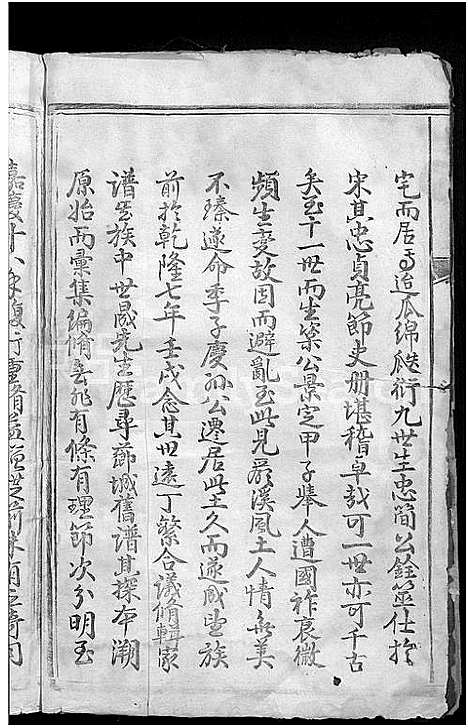 宅而居焉迨瓜綿瓞衍九世生忠簡公銓筮仕於
宋其忠貞亮節史册堪稽卓哉可一世亦可千古
矣至十一世而生築公景定甲子舉人遭國祚衰微
頻生变故因而避亂至此見嚴溪風土人情甚美
不瑧遂命季子慶孙公遷居此土久而遂成望族
前於乾隆七年壬戌念其世遠丁繁合議脩輯家
譜吾族中世晟先生歷尋薌城舊譜其探本溯
原始而彙集編脩無非有條有理節次分明至
嘉慶十八年復行重脩